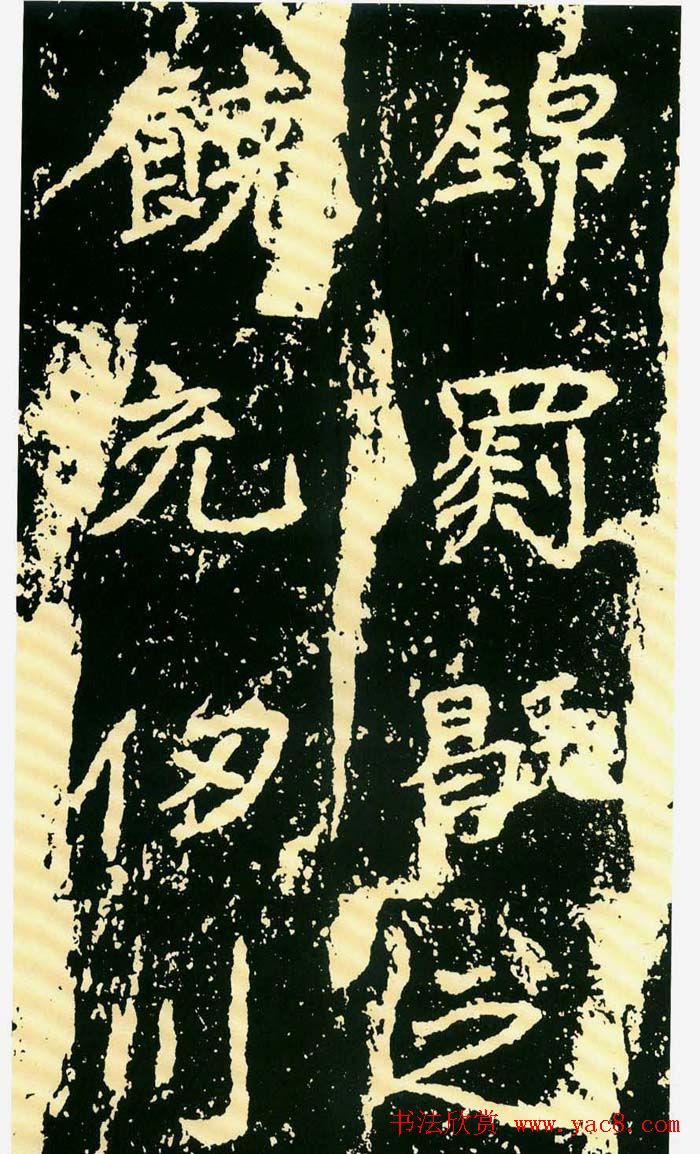 錦罽之
饒充侈川
书法欣赏 www.yac8.com